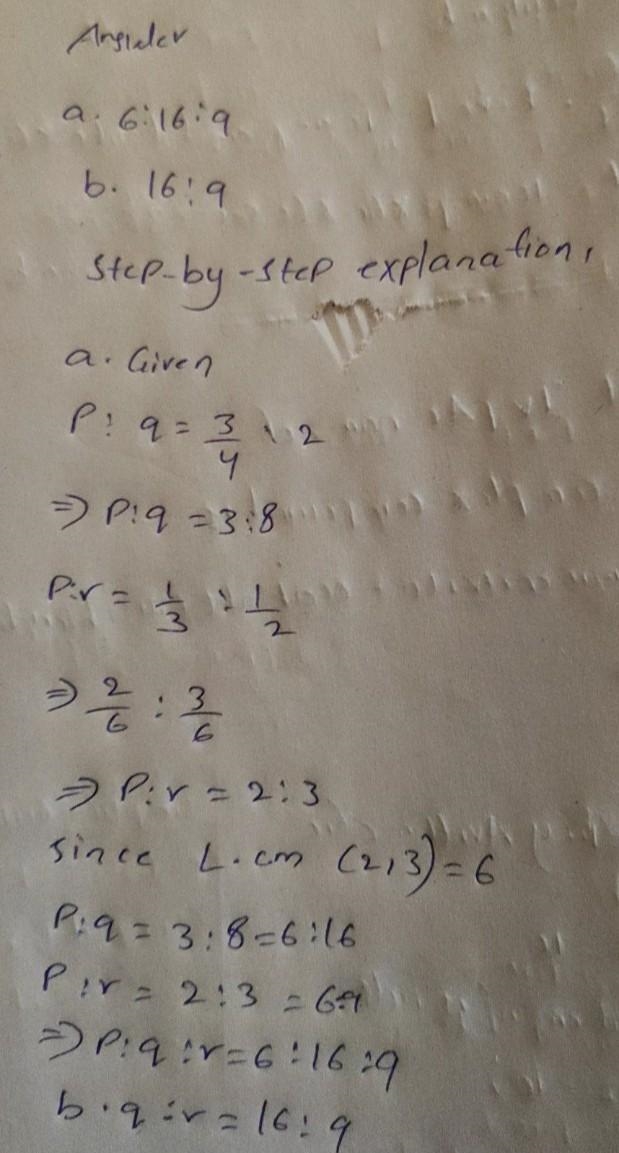 Answer
a. 6:16:9
b. 16:9
Step-by-step explanation,
a. Given
P: q = 3/4 : 2
⇒ P:q = 3:8
P:r = 1/3 : 1/2
⇒ 2/6 : 3/6
⇒ P:r = 2:3
since L.cm (2,3) = 6
P:q = 3:8 = 6:16
P:r = 2:3 = 6:9
⇒ P:q:r = 6:16:9
b. q:r = 16:9